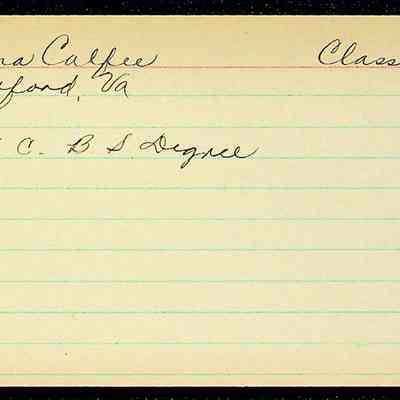 na Calfee Class
ford, Va
C. B S Degree